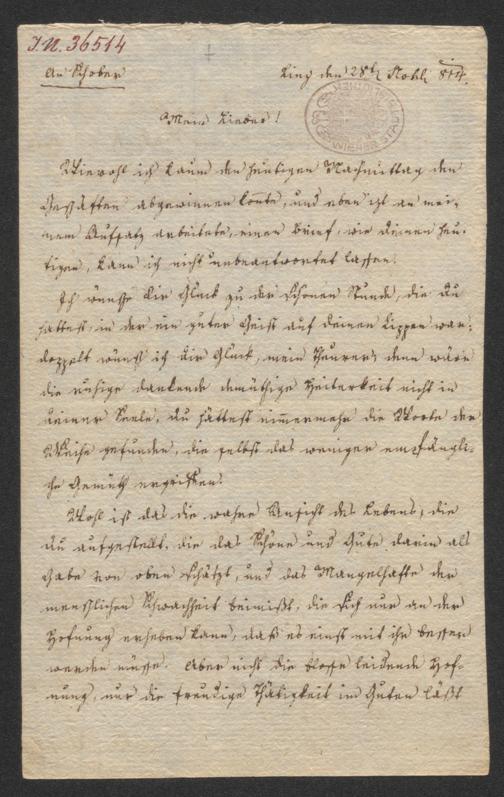 J.N. 36514
An Schober
Linz den 28t 8br 814.
WIENER STADT
Mein Lieber!
Wiewohl ich kaum den heutigen Nachmittag den
Geschäften abgewinnen konnte, und eben izt an mei-
nem Aufsatz arbeitete, einen Brief, wie deinen heu-
tigen, kann ich nicht unbeantwortet lassen.
Ich wünsche dir Glück zu der schönen Stunde, die du
hattest, in der ein guter Geist auf deinen Lippen war;
doppelt wünsch ich dir Glück, mein Theurer; denn wäre
die ruhige dankende demüthige Heiterkeit nicht in
deiner Seele, du hättest nimmermehr die Worte der
Weihe gefunden, die selbst das weniger empfängli-
che Gemüth ergriffen.
Wohl ist das die wahre Ansicht des Lebens, die
du aufgestellt, die das Schöne und Gute darin als
Gabe von oben schätzt, und das Mangelhafte der
menschlichen Schwachheit beimißt, die sich nur an der
Hofnung erheben kann, daß es einst mit ihr besser
werden müsse. Aber nicht die blosse leidende Hof-
nung, nur die freudige Thätigkeit im Guten läßt